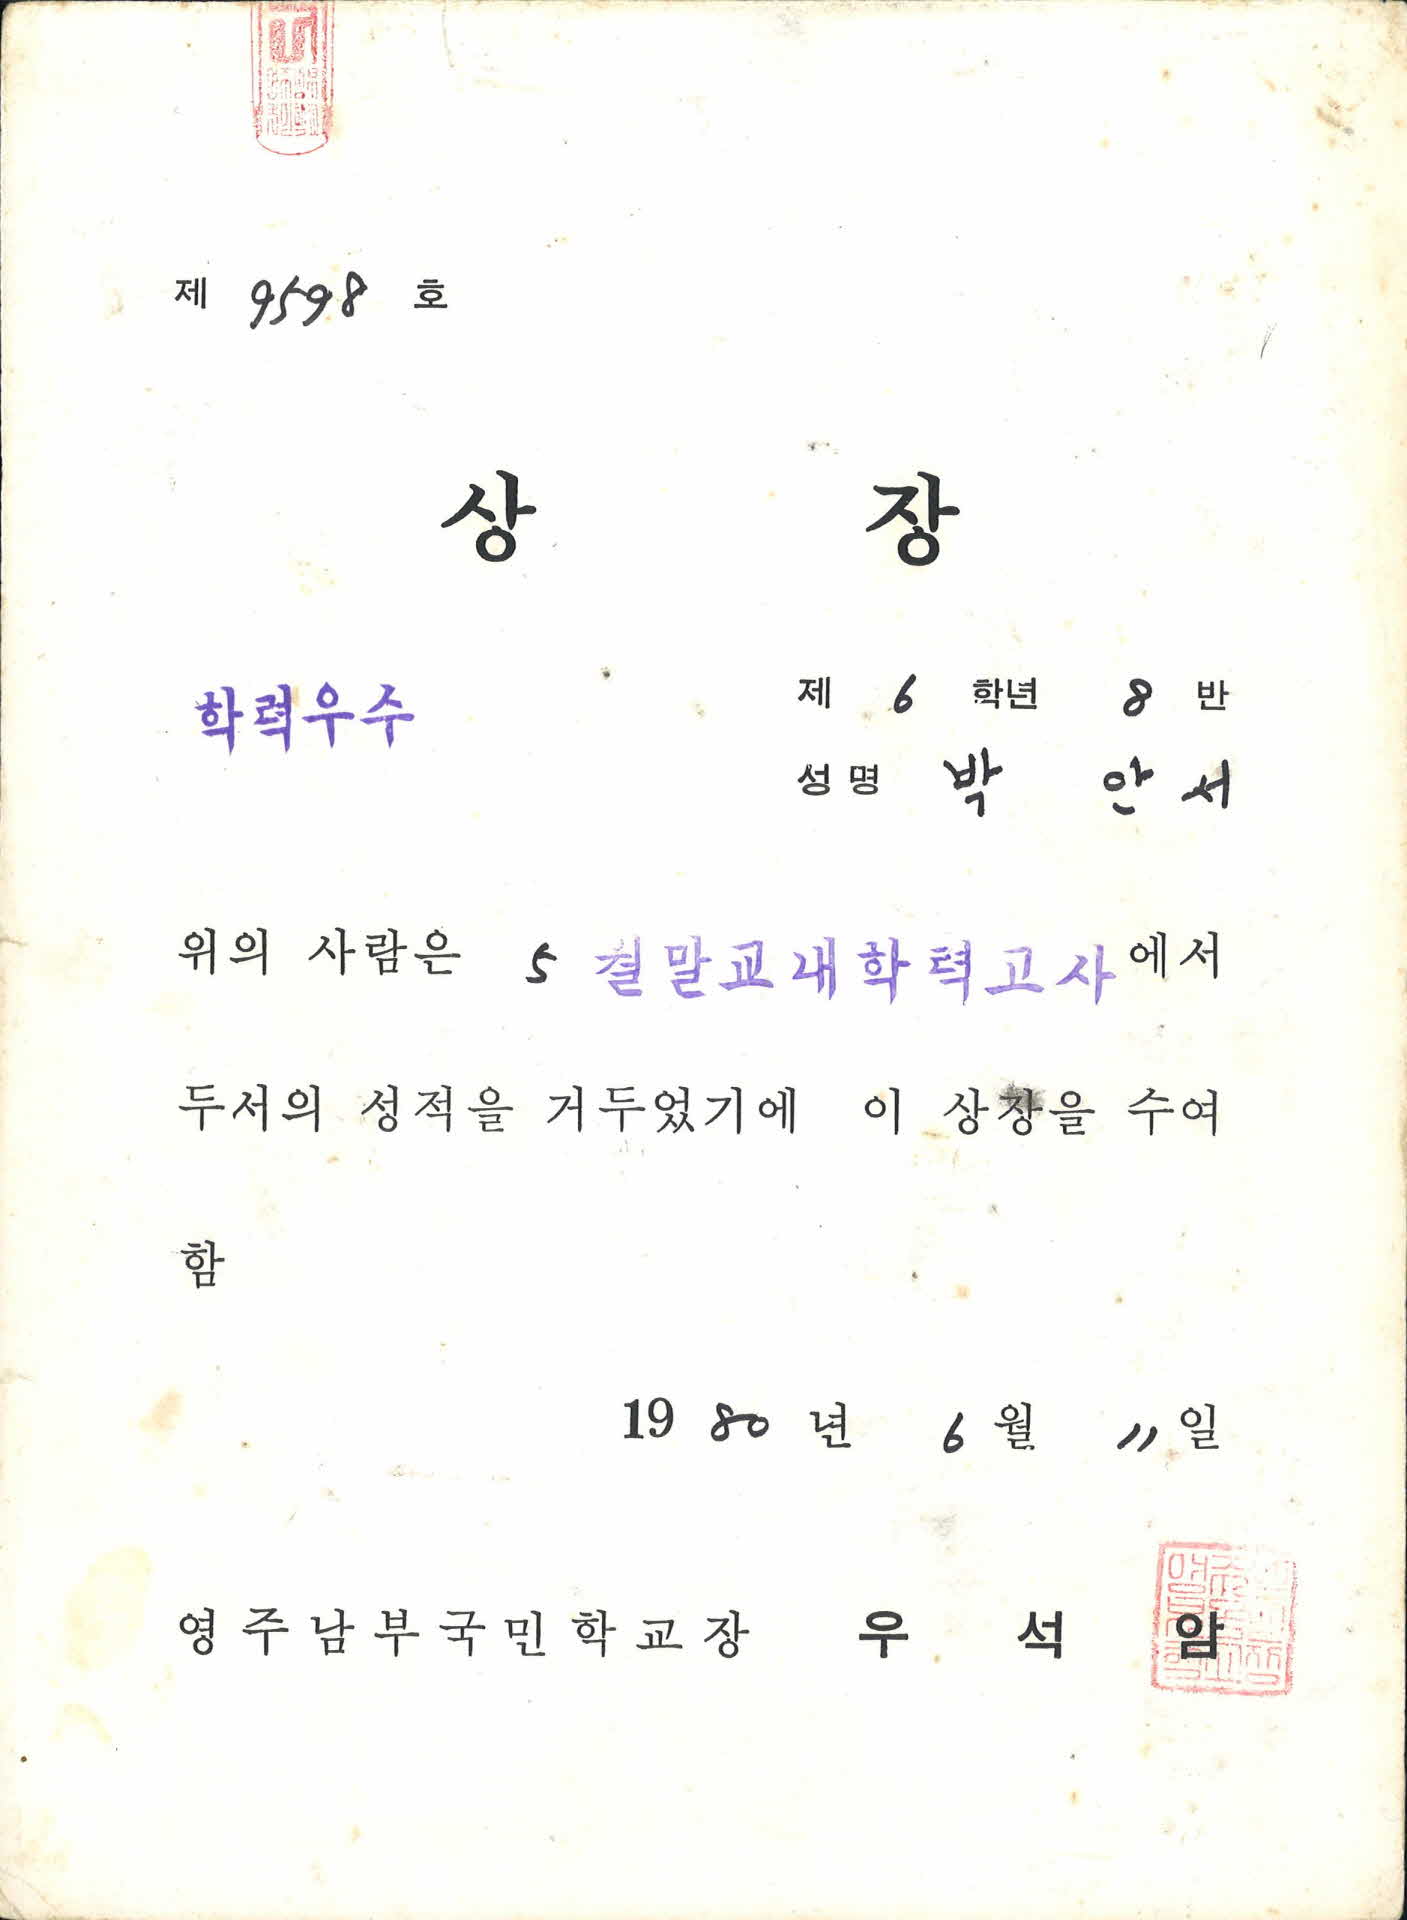 제 9598 호
상 장
학력우수
제 6 학년 8 반
성명 박 안서
위의 사람은 5 월말교내학력고사에서
두서의 성적을 거두었기에 이 상장을 수여
함
1980년 6월 11일
영주남부국민학교장 우 석 암